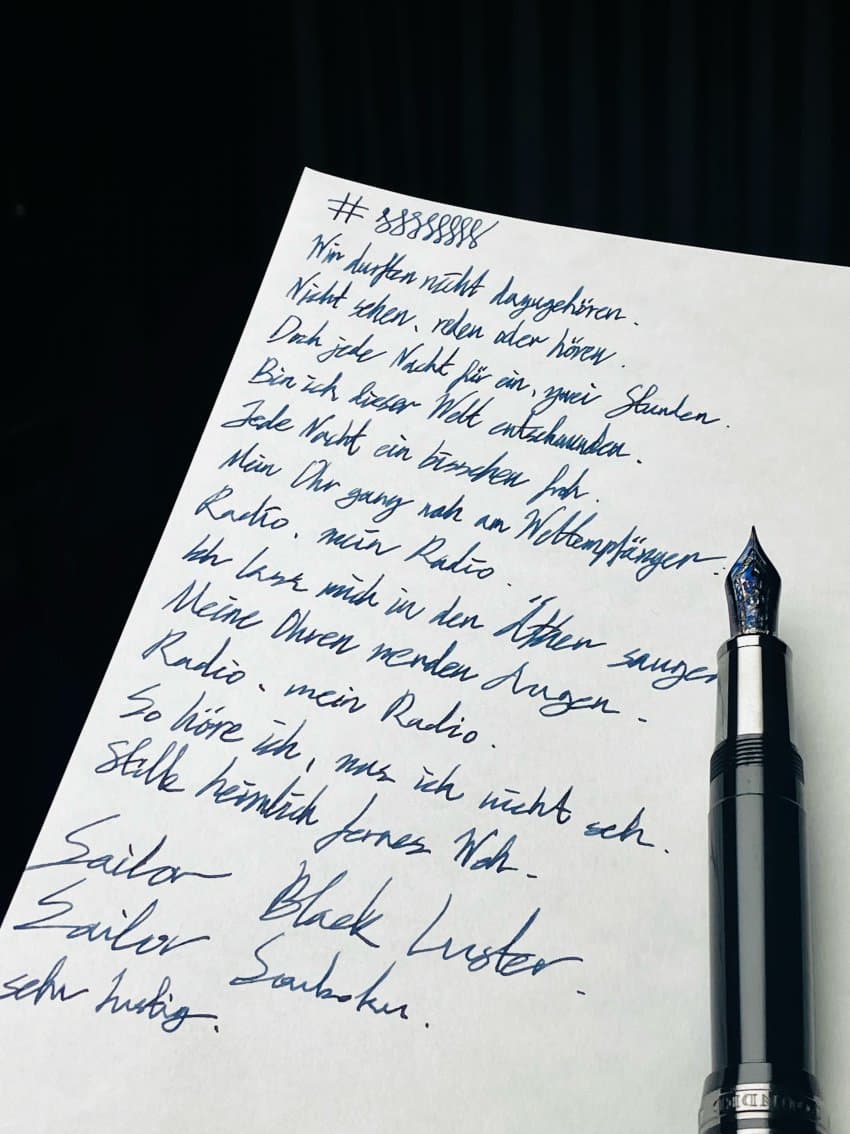 #
Wir durften nicht dazugehören.
Nicht sehen, reden oder hören.
Doch jede Nacht für ein, zwei Stunden.
Bin ich dieser Welt entschwunden.
Jede Nacht ein bisschen froh.
Mein Ohr ganz nah am Weltempfänger.
Radio, mein Radio.
Ich lass mich in den Äther saugen
Meine Ohren werden Augen.
Radio, mein Radio.
So höre ich, was ich nicht seh.
Stille heimlich fernes Weh.
Sailor Black Luster.
Sailor Souboku.
sehr lustig.